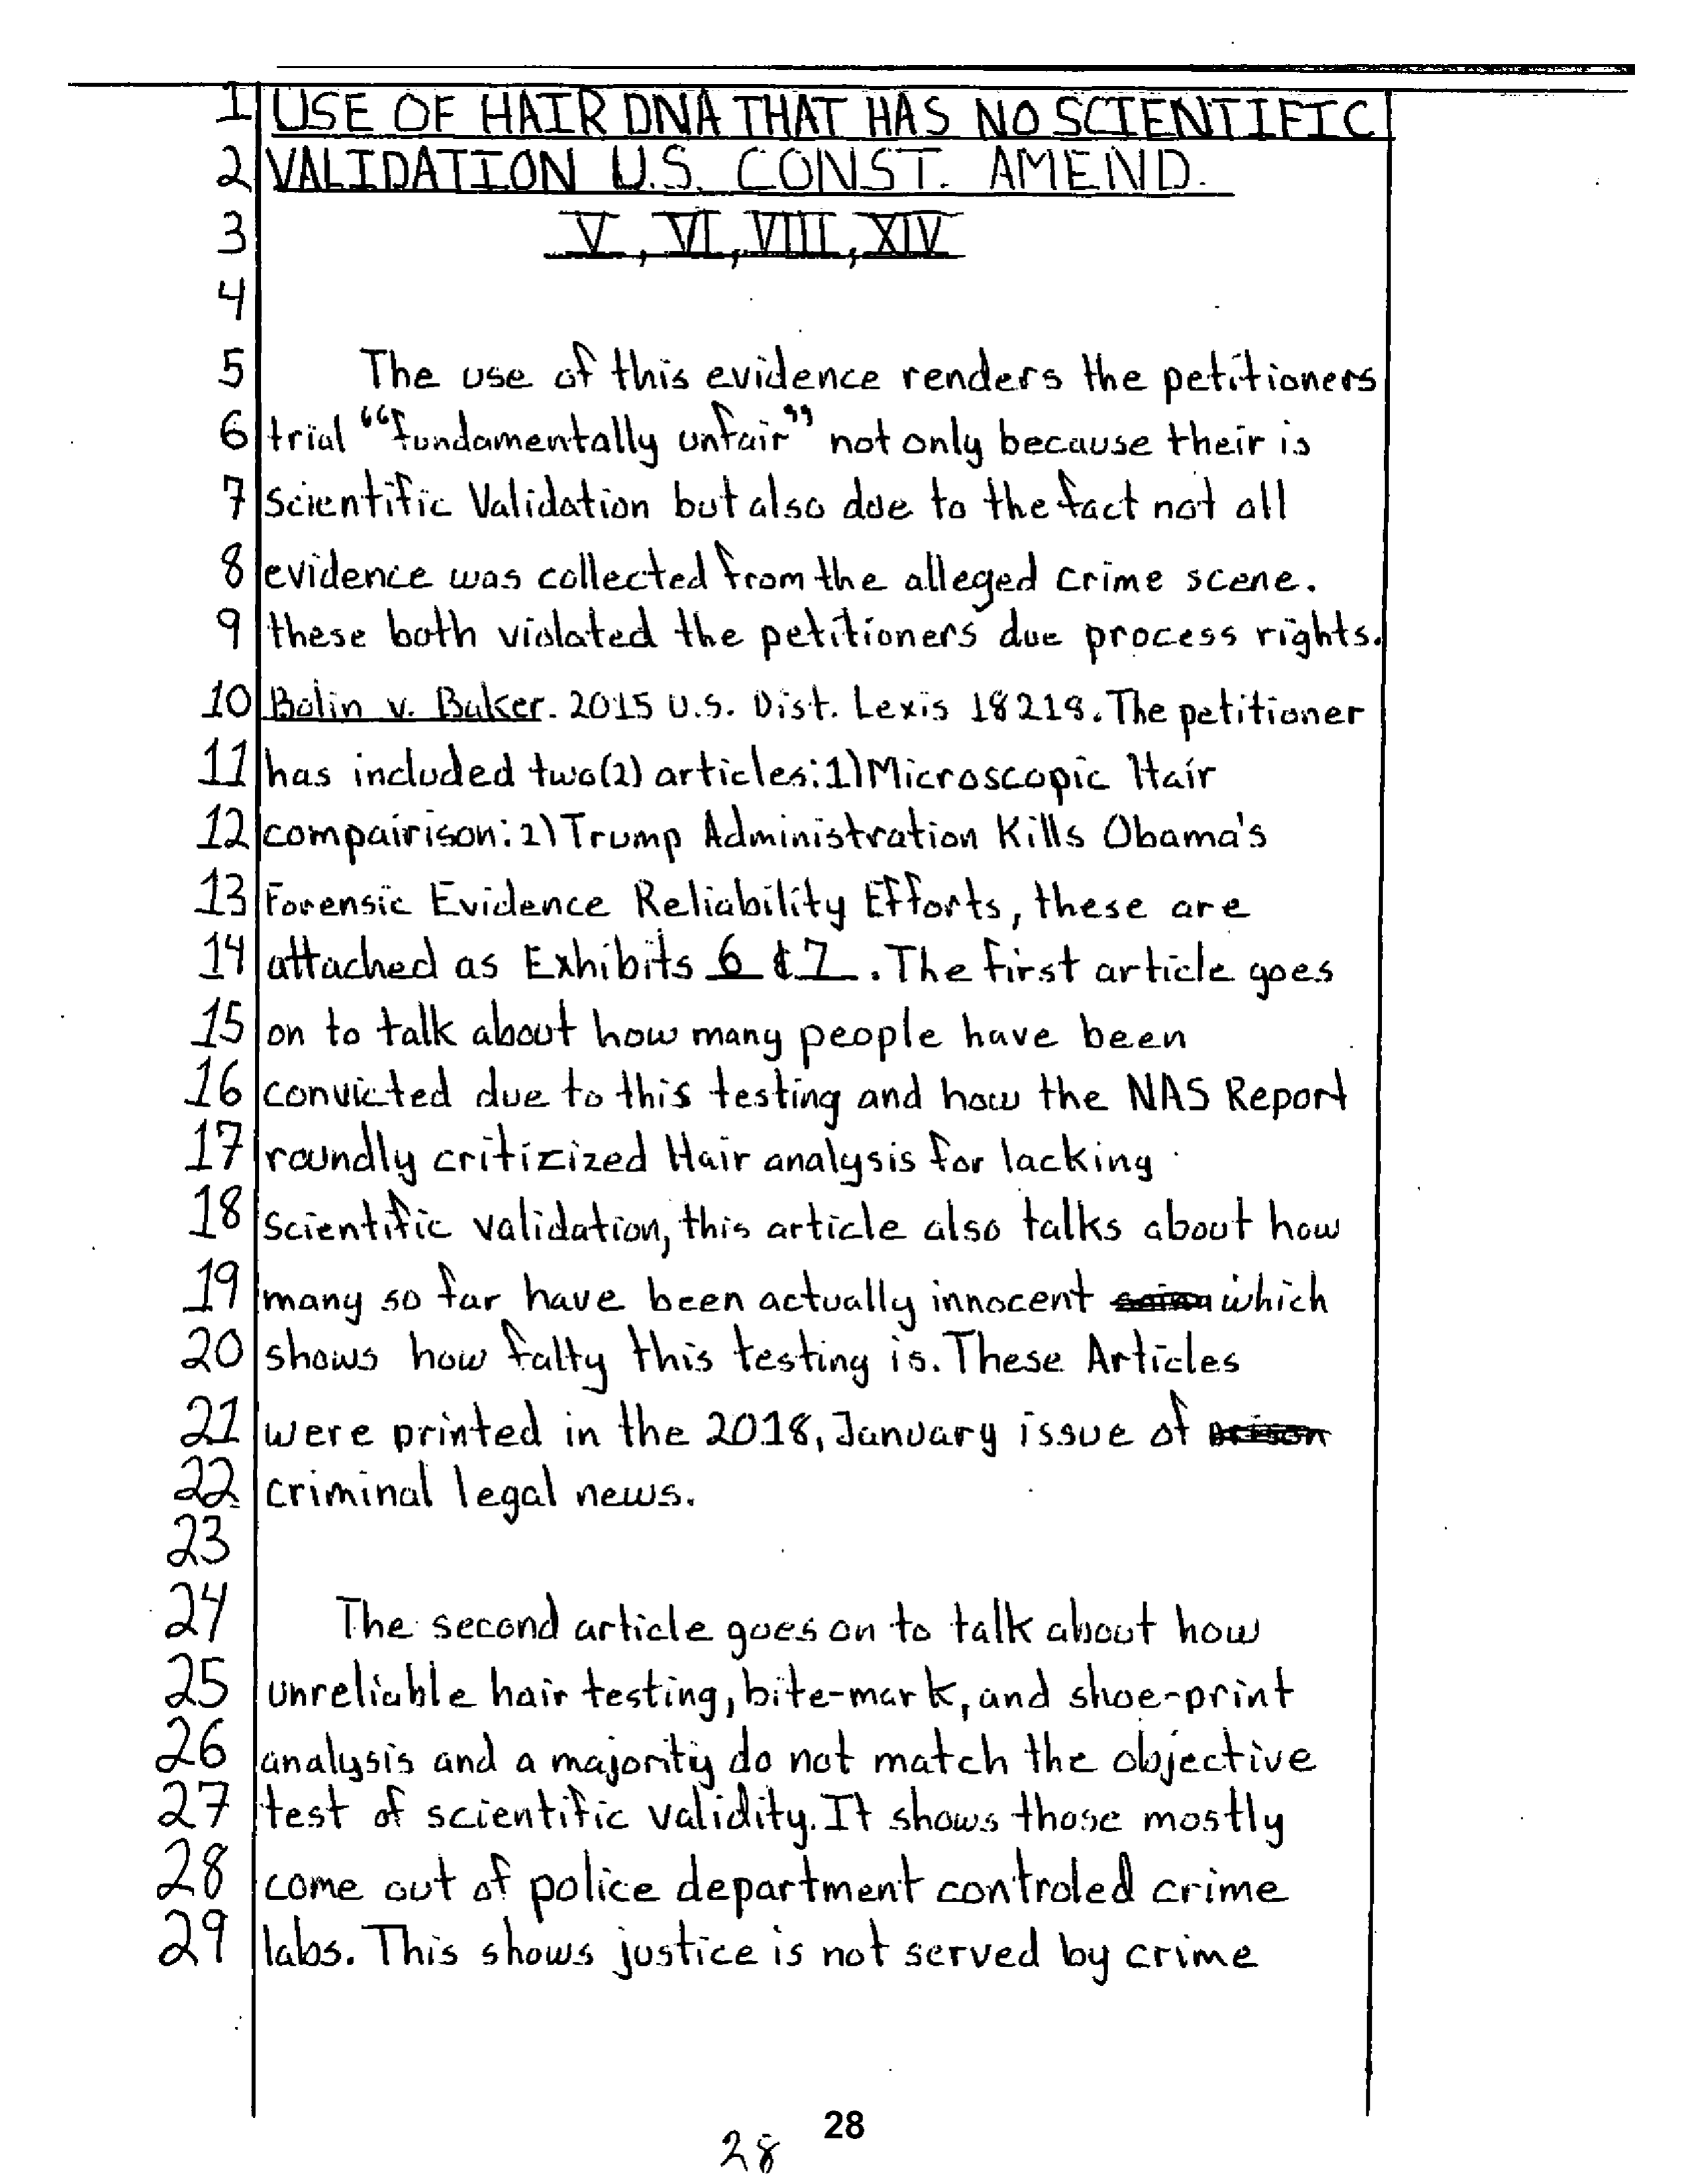 1 USE OF HAIR DNA THAT HAS NO SCIENTIFIC
2 VALIDATION U.S. CONST. AMEND.
3 V, VI, VIII, XIV
4
5 The use of this evidence renders the petitioners
6 trial "fundamentally unfair" not only because their is
7 Scientific Validation but also due to the fact not all
8 evidence was collected from the alleged crime scene.
9 these both violated the petitioners due process rights.
10 Bolin v. Baker. 2015 U.S. Dist. Lexis 18218. The petitioner
11 has included two(2) articles: 1) Microscopic Hair
12 compairison: 2) Trump Administration Kills Obama's
13 Forensic Evidence Reliability Efforts, these are
14 attached as Exhibits 6 & 7. The first article goes
15 on to talk about how many people have been
16 convicted due to this testing and how the NAS Report
17 roundly critizized Hair analysis for lacking
18 Scientific validation, this article also talks about how
19 many so far have been actually innocent which
20 shows how falty this testing is. These Articles
21 were printed in the 2018, January issue of
22 criminal legal news.
23
24 The second article goes on to talk about how
25 unreliable hair testing, bite-mark, and shoe-print
26 analysis and a majority do not match the objective
27 test of scientific validity. It shows those mostly
28 come out of police department controled crime
29 labs. This shows justice is not served by crime
28
28